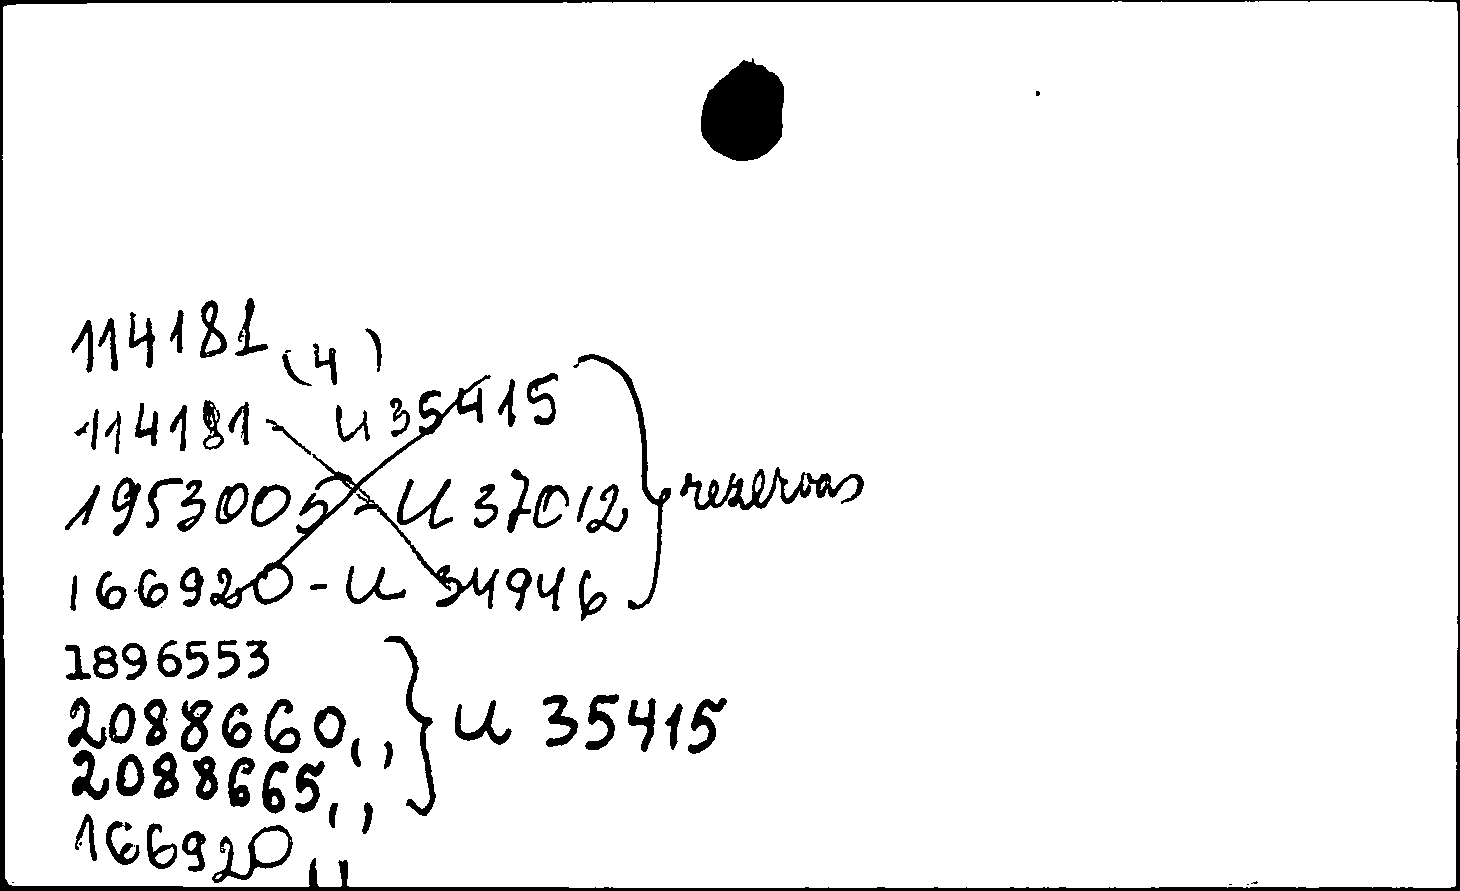 114181 (4)
114181 - U 35415
1953005 - U 37012 } rezervas
166920 - U 34946
1896553
2088660,, } U 35415
2088665,,
166920 ,,